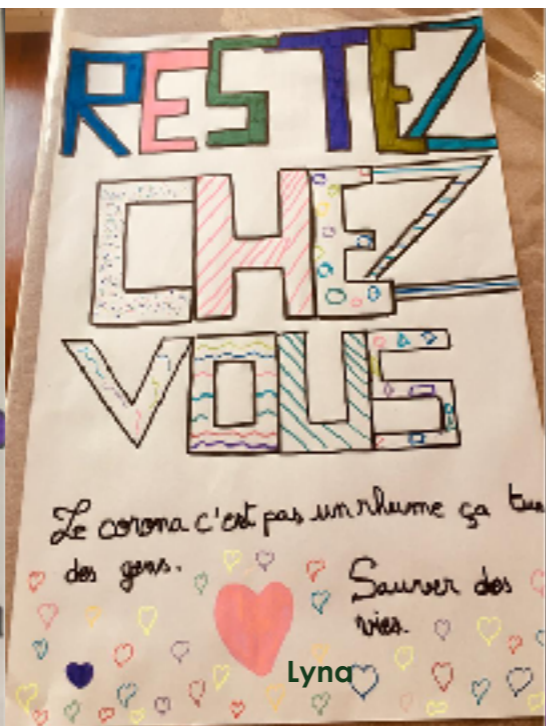 RESTEZ
CHEZ
VOUS
Le corona c'est pas un rhume ça tue
des gens.
Sauver des
vies.
Lyna